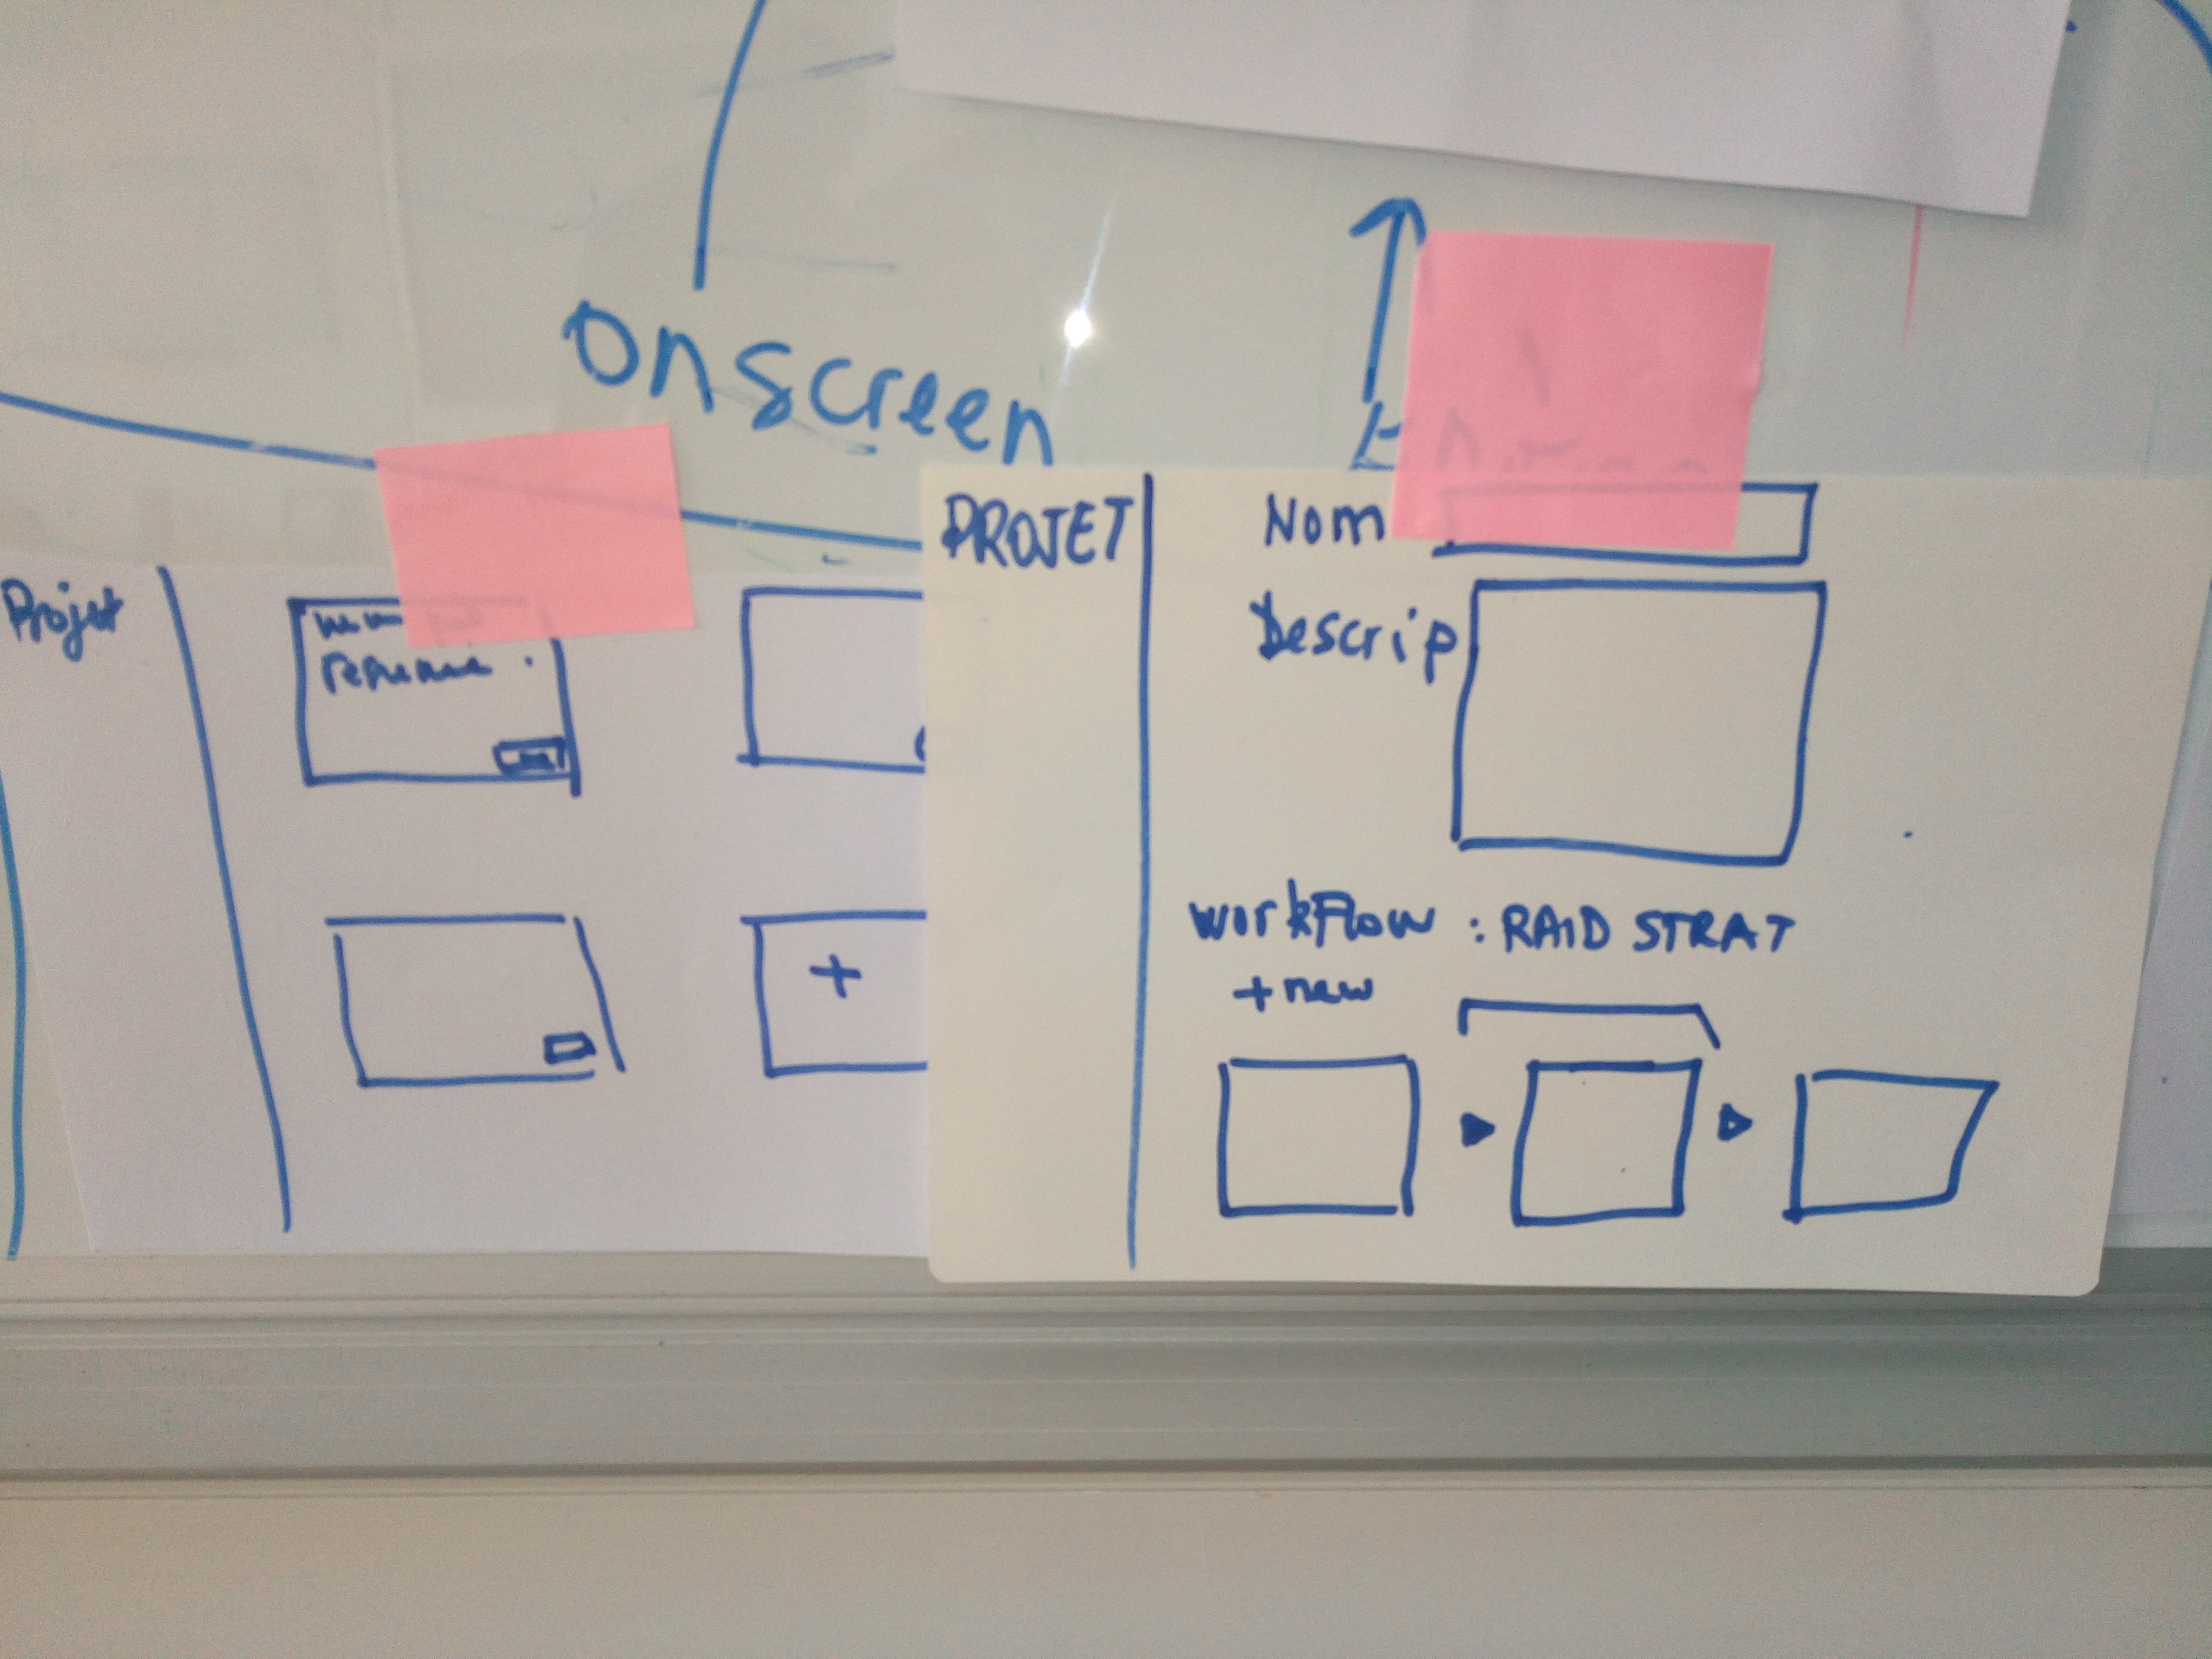 onscreen
Projet
resume
+
PROJET
Nom
Descrip
workflow : RAID STRAT
+ new